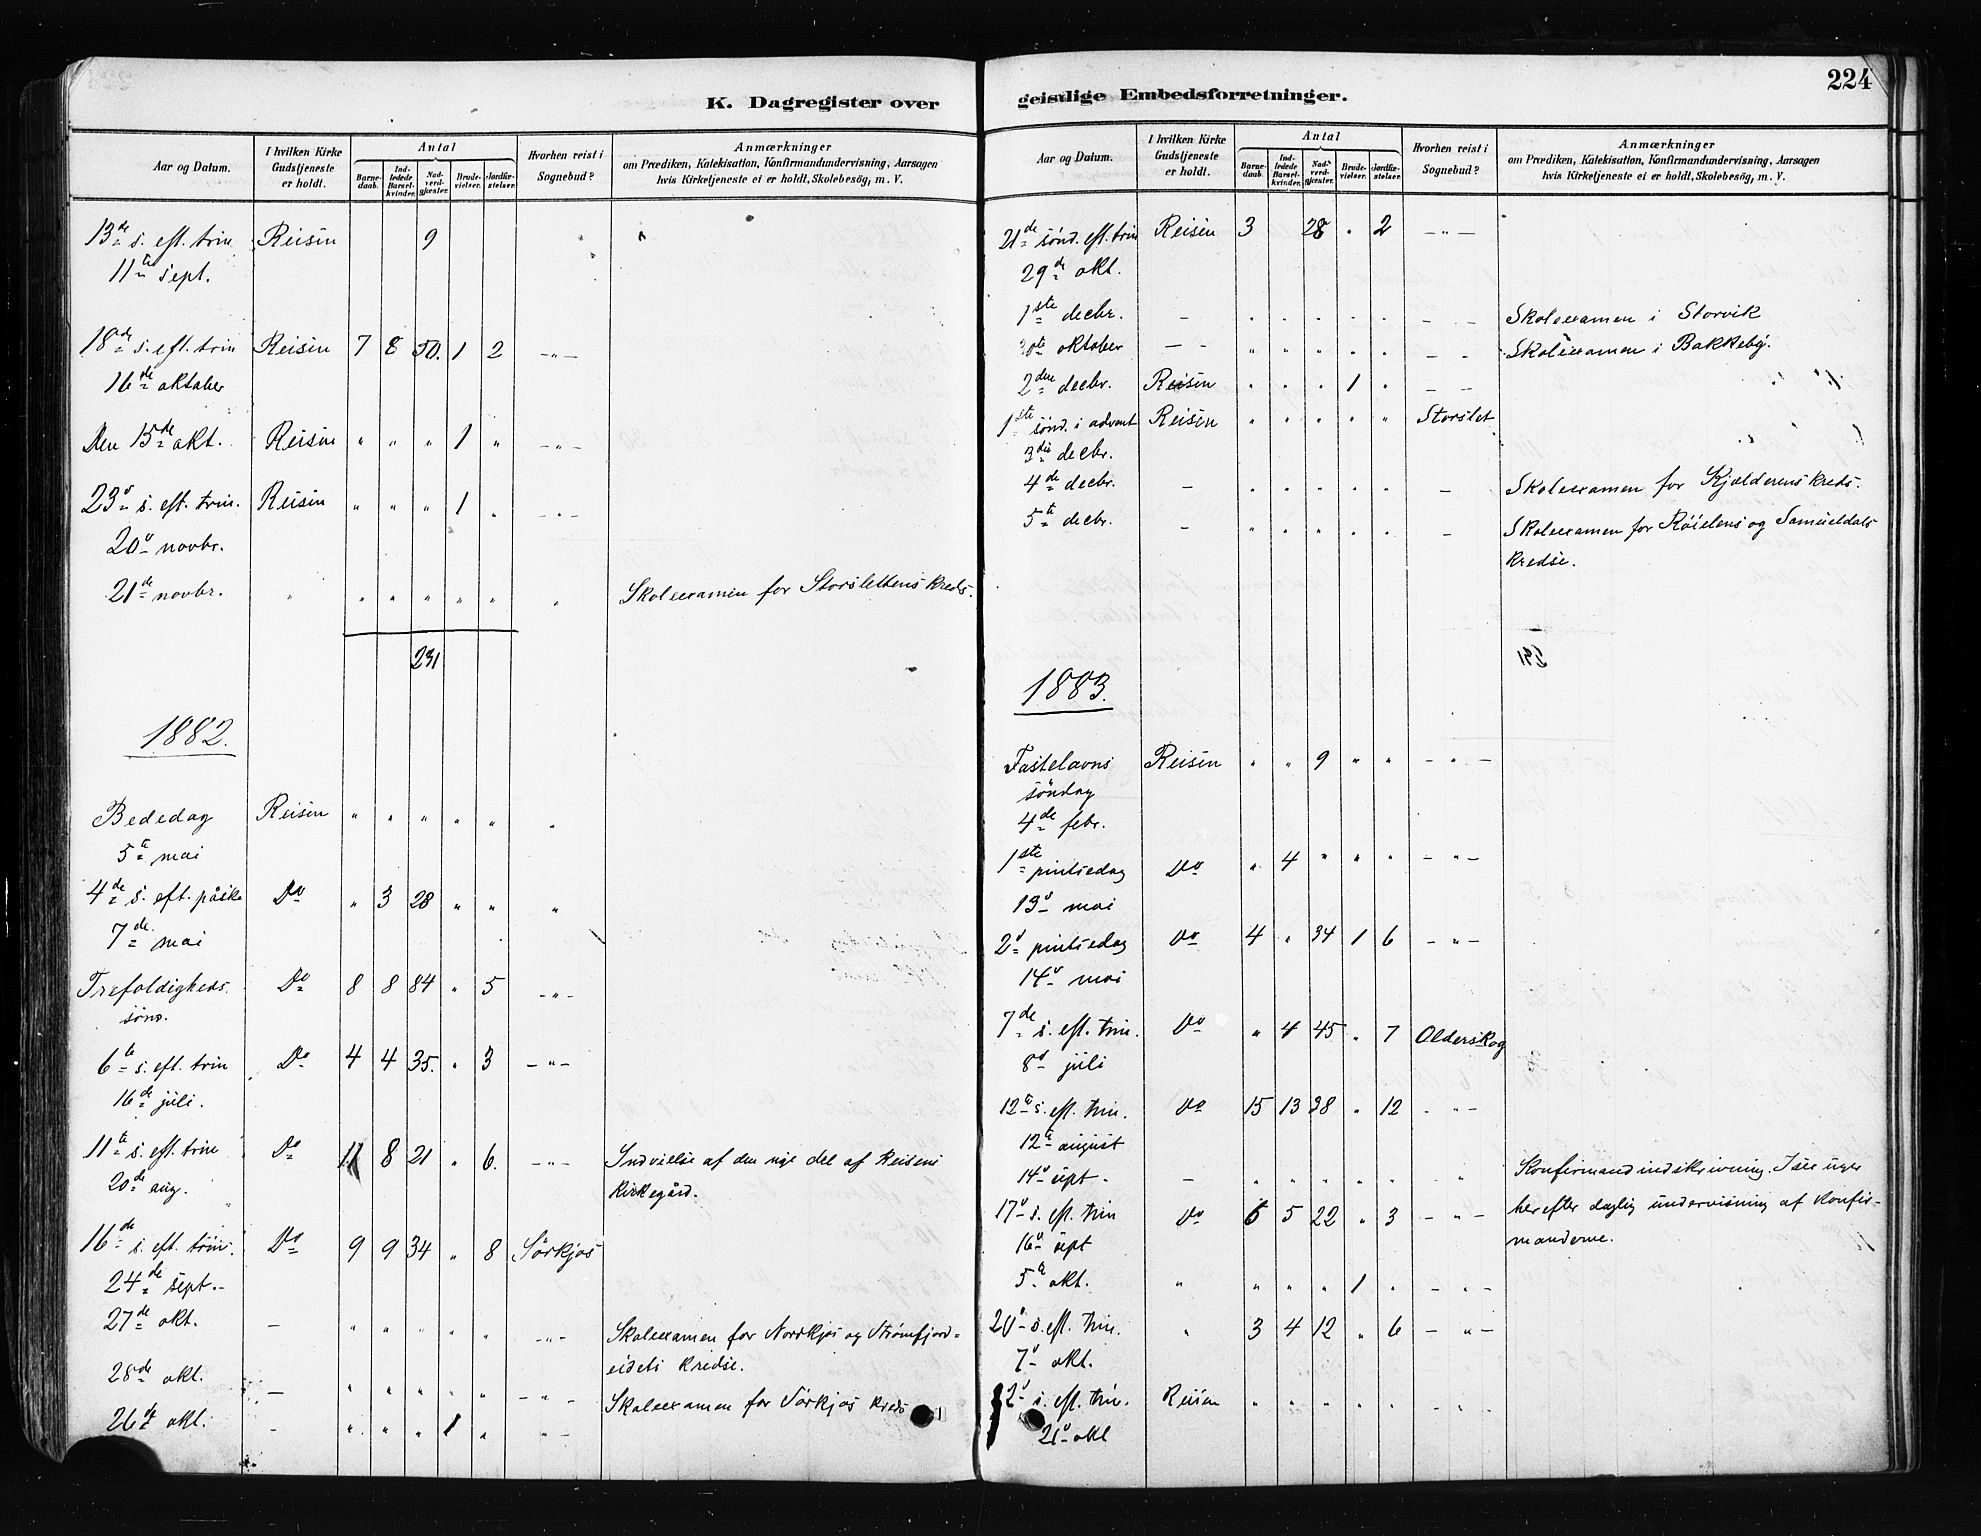 224
K. Dagregister over geistlige Embedsforretninger.
Aar og Datum. I hvilken Kirke Gudstjeneste er holdt. Antal Barnedaab. Indledede Barselkvinder. Nadverdgjæster. Brudevielser. Jordfæstelser. Hvorhen reist i Sognebud? Anmærkninger
om Prædiken, Katekisation, Konfirmandundervisning, Aarsagen
hvis Kirketjeneste ei er holdt, Skolebesög, m. V.
13de s. eft. trin Reisen 9
11te sept.
18de s. eft. trin Reisen 7 8 50. 1 2 - " -
16de oktober
Den 15de okt. Reisen " " " 1 " - " -
23d s. eft. trin. Reisen " " " 1 " - " -
20d novbr.
21de novbr. " " " " " " " Skoleexamen for Storslettens kreds.
231
1882.
Bededag Reisen " " " " " "
5te mai
4de s. eft. påske Do " 3 28 " " "
7de mai
Trefoldigheds Do 8 8 84 " 5 - " -
sønd.
6te s. eft. trin Do 4 4 35. " 3 - " -
16de juli.
11te s. eft. trin Do 11 8 21 " 6. - " - Indvielse af den nye del af Reisens
20de aug. kirkegård.
16de s. eft. trin. Do 9 9 34 " 8 Sörkjos
24de sept.
27de okt. - " " " " " - " - Skoleexamen for Nordkjos og Strømfjord-
eidets kredse.
28de okt. - " " " " " - " - Skoleexamen for Sörkjos kreds
26de okt. - " " " 1 " - " -
Aar og Datum. I hvilken Kirke Gudstjeneste er holdt. Antal Barnedaab. Indledede Barselkvinder. Nadverdgjæster. Brudevielser. Jordfæstelser. Hvorhen reist i Sognebud? Anmærkninger
om Prædiken, Katekisation, Konfirmandundervisning, Aarsagen
hvis Kirketjeneste ei er holdt, Skolebesög, m. V.
21de sønd. eft. trin Reisen 3 28 " 2 - " -
29de okt.
1ste decbr. - " " " " " - - Skoleexamen i Storvik
oktober - - " " " " " - - Skoleexamen i Bakkeby.
2den decbr. Reisen " " " 1 " - -
1ste sønd. i advent Reisen " " " " " Storslet
3die decbr.
4de decbr. - " " " " " - Skoleexamen for Kjelderens kreds.
5te decbr. - " " " " " - Skoleexamen for Röielens og Samueldals
kredse.
1883.
Fastelavns Reisen " " 9 " " - " -
söndag
4de febr.
1ste pintsedag Do " 4 " " " - " -
13d mai
2d pintsedag Do 4 " 34 1 6 - " -
14d mai
7de s. eft. trin. Do " 4 45 " 7 Olderskog
8d juli
12te s. eft. trin. Do 15 13 38 " 12 - " -
12te august
14d sept. - " " " " " " Konfirmandindskrivning. I uger
17d s. eft. trin Do 6 5 22 " 3 - " - herefter daglig undervisning af konfir-
16d sept manderne.
5te okt. " " " " 1 " - " -
20d s. eft. trin. " 3 4 12 " 6 - " -
7d okt.
2d s. eft. trin. Reisen " " " " " - " -
21d okt